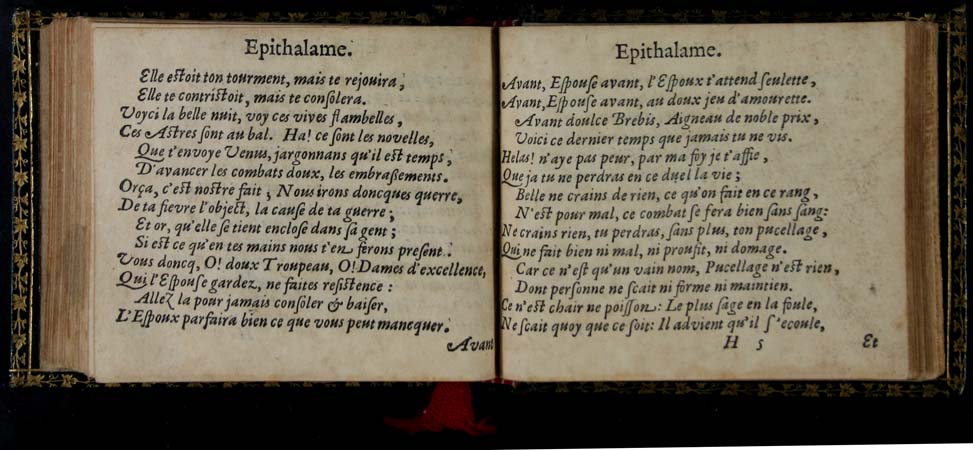 Epithalame.
Elle estoit ton tourment, mais te rejouira;
Elle te contristoit, mais te consolera.
Voyci la belle nuit, voy ces vives flambelles,
Ces Astres sont au bal. Ha! ce sont les novelles,
Que t'envoye Venus, jargonnans qu'il est temps;
D'avancer les combats doux, les embraßements.
Orça, c'est nostre fait; Nous irons doncques querre,
De ta fievre l'object, la cause de ta guerre;
Et or, qu'elle se tient enclose dans sa gent;
Si est ce qu'en tes mains nous t'en ferons present.
Vous doncq, O! doux Troupeau, O! Dames d'excellence,
Qui l'Espouse gardez, ne faites resistence:
Allez la pour jamais consoler & baiser,
L'Espoux parfaira bien ce que vous peut mancquer.
Avant
Epithalame.
Avant, Espouse avant, l'Espoux t'attend seulette,
Avant, Espouse avant, au doux jeu d'amourette.
Avant doulce Brebis, Aigneau de noble prix,
Voici ce dernier temps que jamais tu ne vis.
Helas! n'aye pas peur, par ma foy je t'affie,
Que ja tu ne perdras en ce duel la vie;
Belle ne crains de rien, ce qu'on fait en ce rang,
N'est pour mal, ce combat se fera bien sans sang:
Ne crains rien, tu perdras, sans plus, ton pucellage,
Qui ne fait bien ni mal, ni proufit, ni domage.
Car ce n'est qu'un vain nom, Pucellage n'est rien,
Dont personne ne scait ni forme ni maintien.
Ce n'est chair ne poisson: Le plus sage en la foule,
Ne scait quoy que ce soit: Il advient qu'il s'ecoule,
H 5 Et